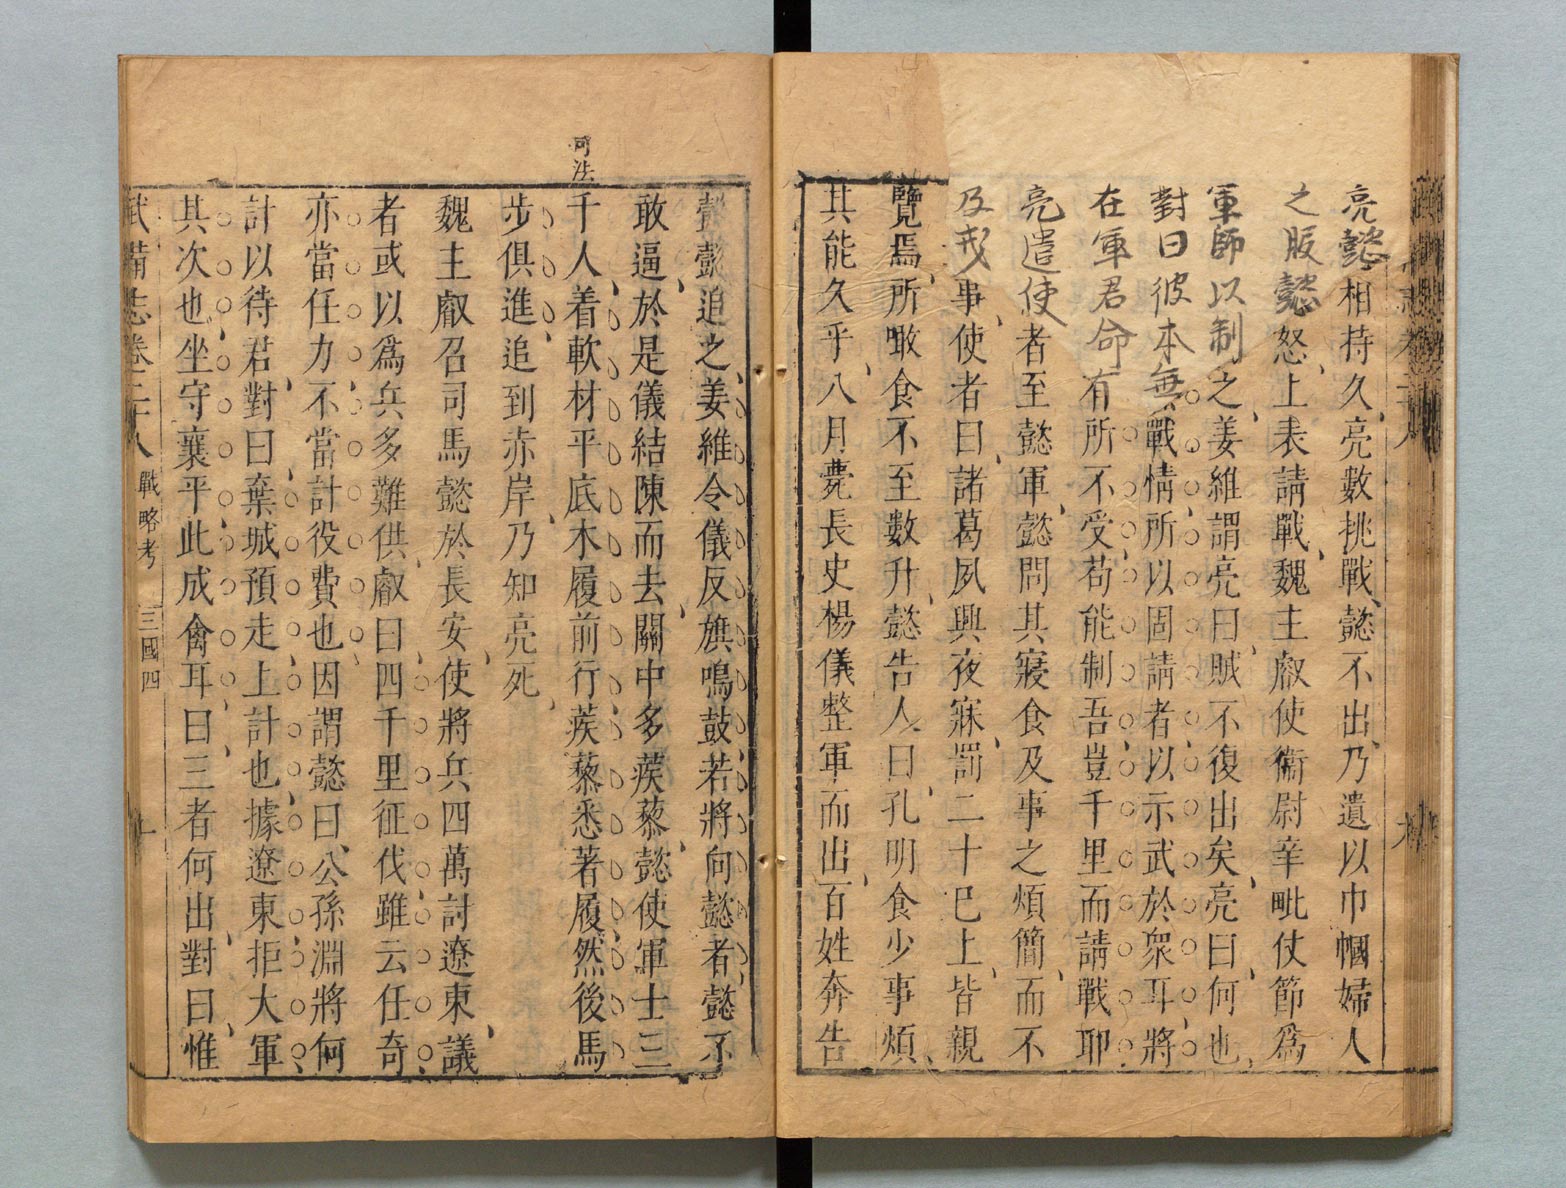 亮懿相持久亮數挑戰懿不出乃遺以巾幗婦人
之服懿怒上表請戰魏主叡使衞尉辛毗仗節爲
軍師以制之姜維謂亮曰賊不復出矣亮曰何也
對曰彼本無戰情所以固請者以示武於衆耳將
在軍君命有所不受苟能制吾豈千里而請戰耶
亮遣使者至懿軍懿問其寢食及事之煩簡而不
及戎事使者曰諸葛夙興夜寐罰二十巳上皆親
覽焉所噉食不至數升懿告人曰孔明食少事煩
其能久乎八月薨長史楊儀整軍而出百姓奔告
懿懿追之姜維令儀反旗鳴鼓若將向懿者懿不
敢逼於是儀結陳而去關中多蒺藜懿使軍士三
可法
千人着軟材平底木履前行蒺藜悉著履然後馬
步俱進追到赤岸乃知亮死
魏主叡召司馬懿於長安使將兵四萬討遼東議
者或以爲兵多難供叡曰四千里征伐雖云任奇
亦當任力不當計役費也因謂懿曰公孫淵將何
計以待君對曰棄城預走上計也據遼東拒大軍
其次也坐守襄平此成禽耳曰三者何出對曰惟
武備志卷二十八 戰略考 三國四 十